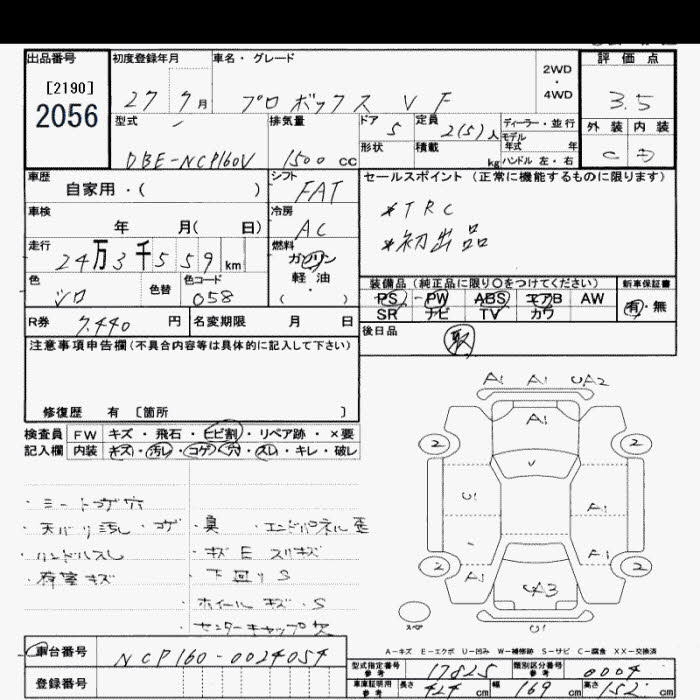 出品番号
[2190]
2056
初度登録年月
27 7月
車名・グレード
プロボックス VF
2WD
・
4WD
評価点
3.5
型式
DBE-NCP160V
排気量
1500 cc
ドア 5
定員 2(5)人
形状
積載 kg
ディーラー・並行
モデル年式 年
ハンドル 左・右
外装 内装
C D
車歴
自家用・( )
シフト
FAT
セールスポイント(正常に機能するものに限ります)
*TRC
*初出品
車検
年 月( 日)
冷房
AC
走行
24万3千559km
燃料
ガソリン
軽・油
( ・ )
色
シロ
色替
色コード
058
装備品(純正品に限り〇をつけてください)
PS PW ABS エアB AW
SR ナビ TV カワ
新車保証書
有・無
R券 7,440円
名変期限 月 日
後日品
取
注意事項申告欄(不具合内容等は具体的に記入して下さい)
修復歴 有 [箇所 ]
検査員記入欄
FW キズ・飛石・ヒビ割・リペア跡・×要
内装 キズ・汚レ・コゲ・穴・スレ・キレ・破レ
・シートコゲ穴
・天バリ汚レ・コゲ
・ハンドルスレ
・荷室キズ
・臭 ・エンドパネル歪
・キズE スリキズ
・下回りS
・ホイールキズ・S
・センターキャップ欠
A1 A1 UA2
A1
2 2
U1
A1
A1
2 2
A1
UA3
スペア
U1
A-キズ E-エクボ U-凹み W-補修跡 S-サビ C-腐食 XX-交換済
車台番号 NCP160-0024054
登録番号
型式指定番号 参考 17825
類別区分番号 参考 0004
車庫証明用 参考 長さ 424 cm 幅 169 cm 高さ 152 cm